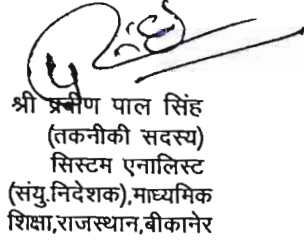 श्री प्रवीण पाल सिंह
(तकनीकी सदस्य)
सिस्टम एनालिस्ट
(संयु.निदेशक),माध्यमिक
शिक्षा,राजस्थान,बीकानेर